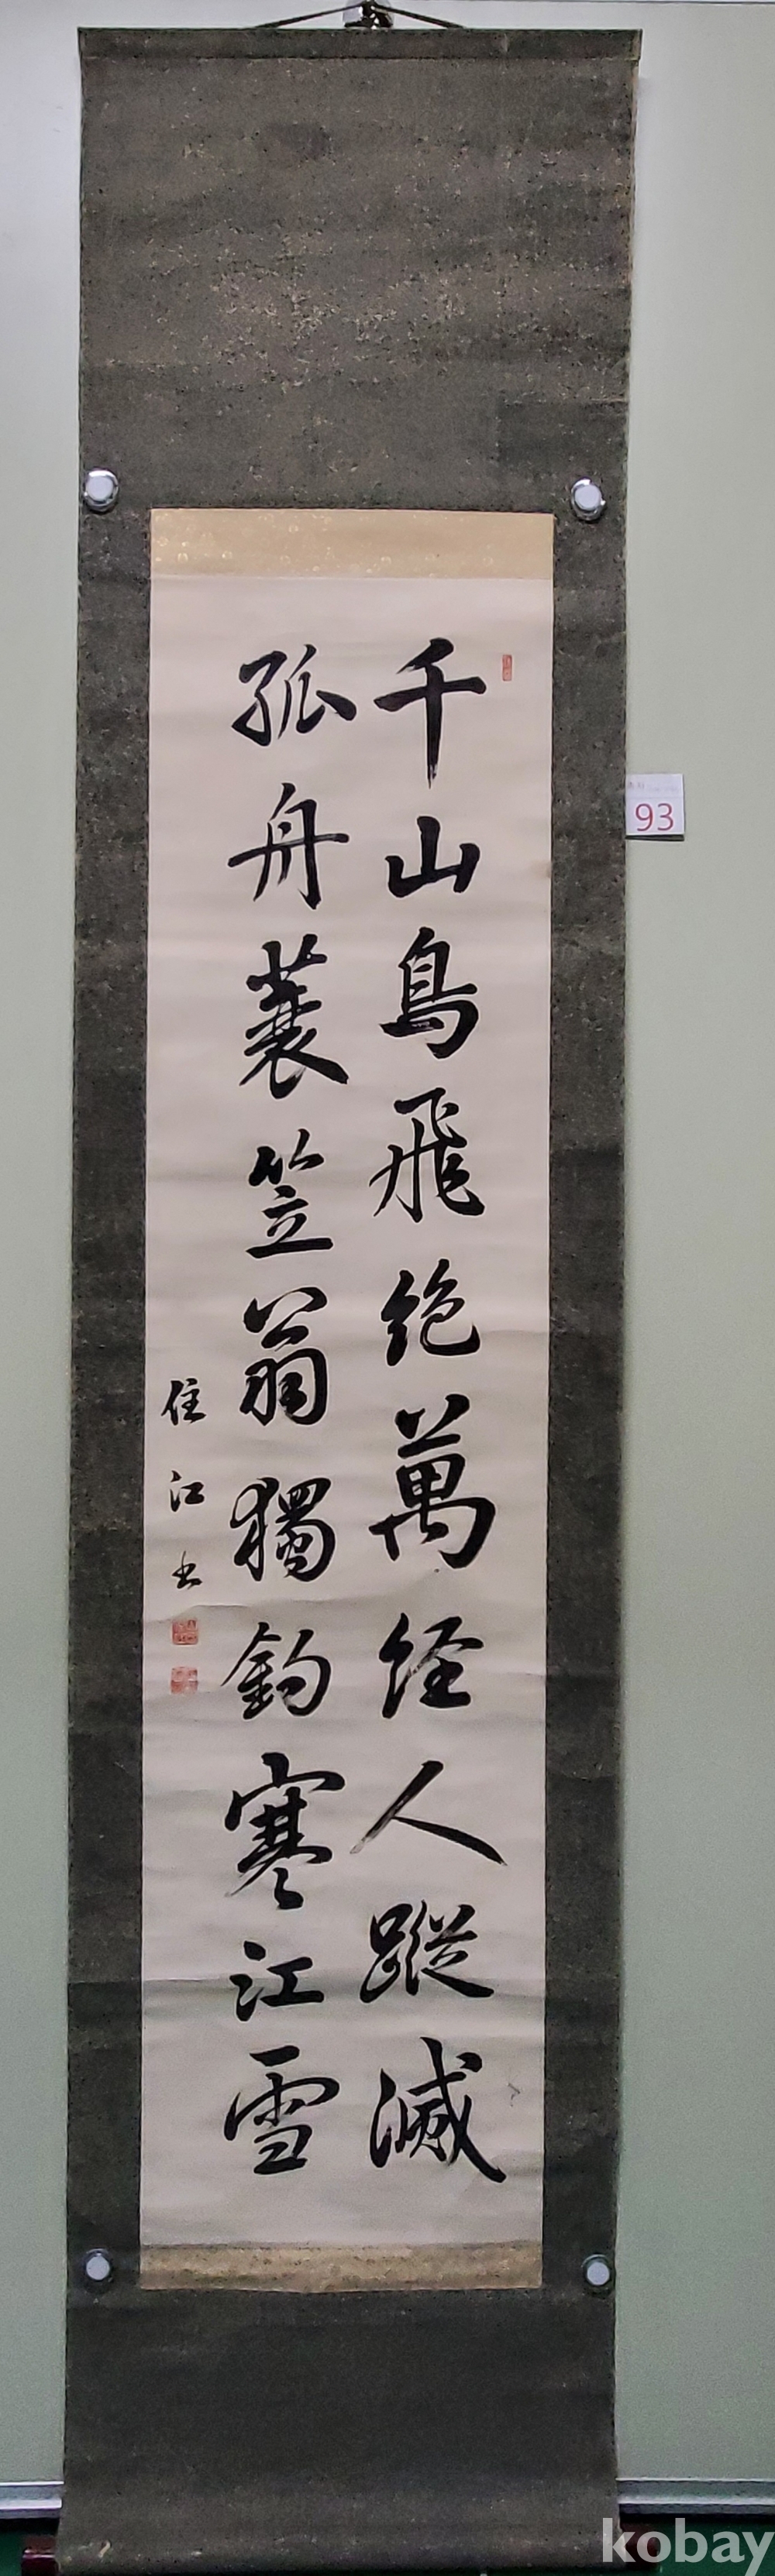 千山鳥飛絶萬経人蹤滅
孤舟蓑笠翁獨釣寒江雪
住江書
93
kobay